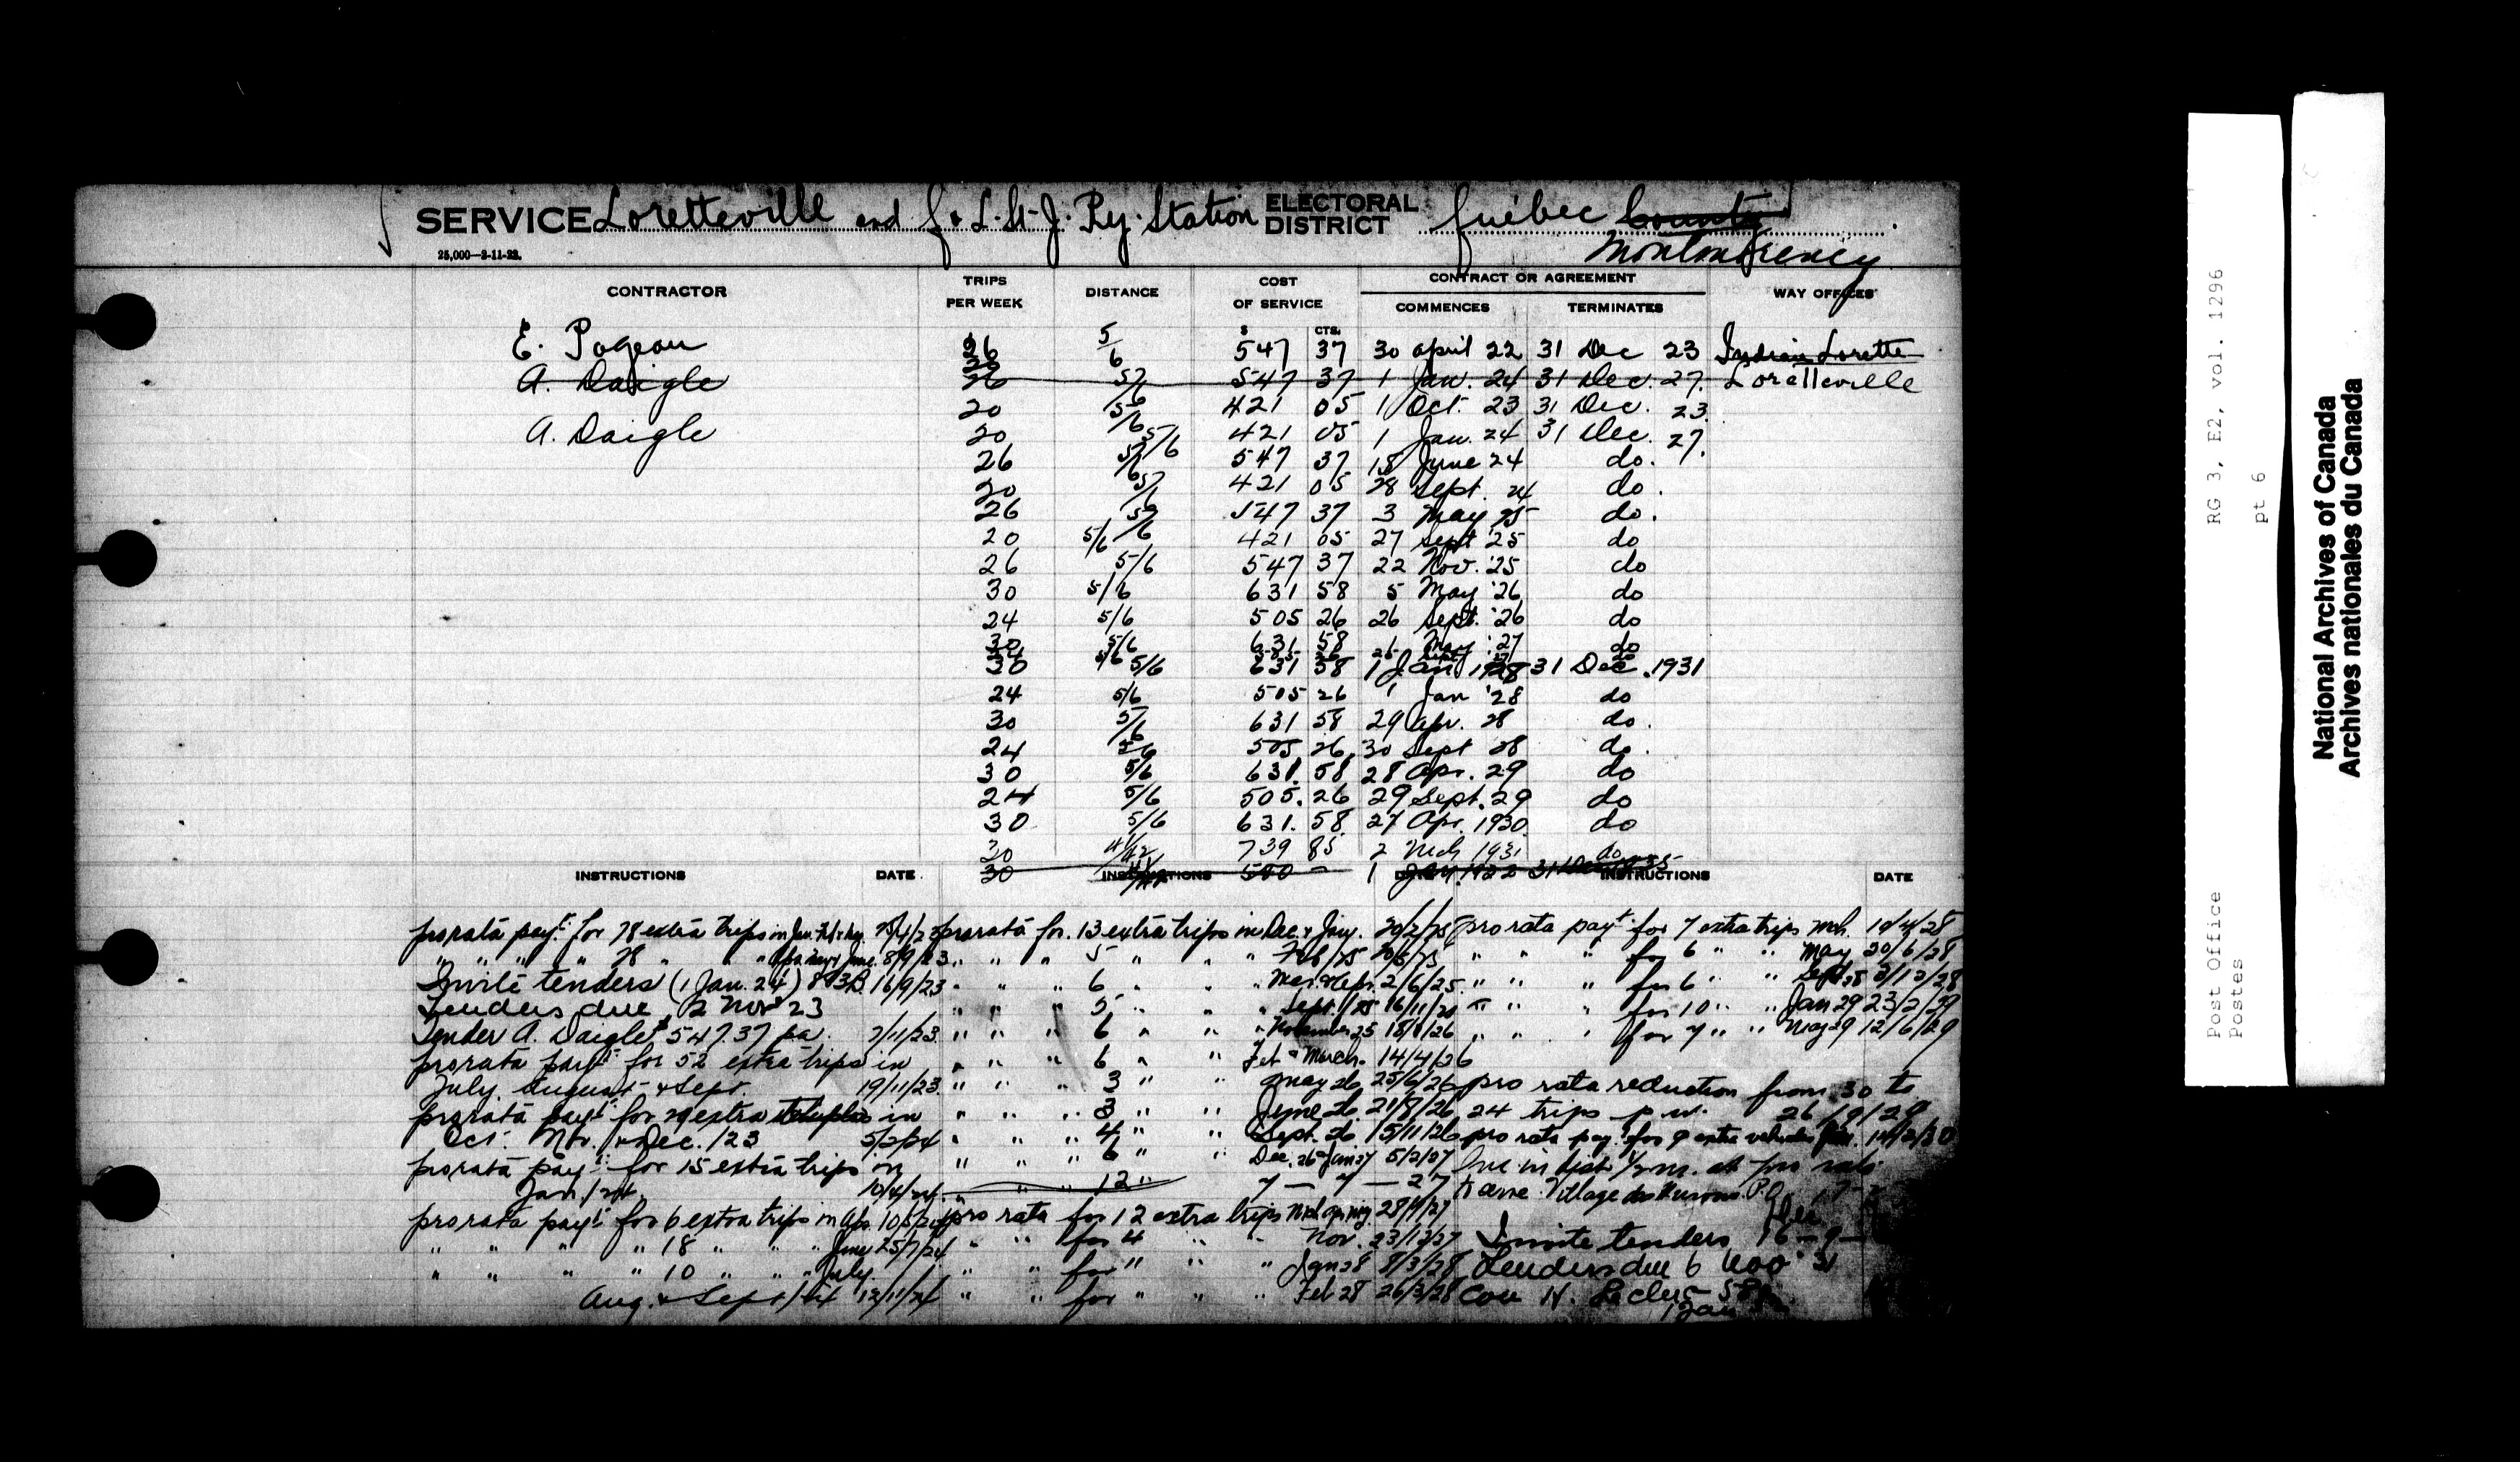 SERVICE Loretteville and Q & L. St. J. Ry. Station ELECTORAL DISTRICT Québec County
Montmorency
25,000—2-11-22.
CONTRACTOR TRIPS PER WEEK DISTANCE COST OF SERVICE CONTRACT OR AGREEMENT COMMENCES TERMINATES WAY OFFICES
$ CTS.
E. Pageau 26 5/6 547 37 30 april 22 31 Dec 23 Indian Lorette
A. Daigle 26 5/6 547 37 1 Jan. 24 31 Dec. 27. Loretteville
20 5/6 421 05 1 Oct. 23 31 Dec. 23.
A. Daigle 20 5/6 421 05 1 Jan. 24 31 Dec. 27.
26 5/6 547 37 15 June 24 do.
20 5/6 421 05 28 Sept. 24 do.
26 5/6 547 37 3 May 25 do.
20 5/6 421 05 27 Sept '25 do
26 5/6 547 37 22 Nov. '25 do
30 5/6 631 58 5 May '26 do
24 5/6 505 26 26 Sept. '26 do
30 5/6 631 58 1 May '27 do
30 5/6 631 58 1 Jan 1928 31 Dec. 1931
24 5/6 505 26 1 Jan '28 do
30 5/6 631 58 29 Apr. 28 do.
24 5/6 505 26 30 Sept 28 do.
30 5/6 631. 58 28 Apr. 29 do
24 5/6 505. 26 29 Sept. 29 do
30 5/6 631. 58 27 Apr. 1930 do
30 739 85 2 Mch 1931 do
30 580 — 1 Jan. 1932 31 Dec 1935
INSTRUCTIONS DATE INSTRUCTIONS DATE INSTRUCTIONS DATE
prorata payt. for 78 extra trips in Jan. Feb & Mar.
" " " " 78 " " " Apr May & June. 8/9/23
Invite tenders (1 Jan. 24) 883B. 16/9/23
Tenders due 2 Nov 23
Tender A. Daigle $547.37 pa. 7/11/23.
prorata payt for 52 extra trips in
July August & Sept. 19/11/23.
prorata payt for 29 extra trips in
Oct. Nov. & Dec. /23 5/2/24
prorata payt for 15 extra trips in
Jan /24. 10/4/24.
prorata payt for 6 extra trips in Apr. 10/5/24
" " " " 18 " " " June 25/7/24
" " " " 10 " " " July
Aug. & Sept/24 12/11/24
prorata for. 13 extra trips in Dec. & Jany. 20/2/25
" " " 5 " " " Feb/25
" " " 6 " " " Mar. & Apr. 2/6/25.
" " " 5 " " " Sept./25
" " " 6 " " " November 25
" " " 6 " " Feb & March. 14/4/26
" " " 3 " " May 26 25/6/26
" " " 3 " " June 26 21/8/26
" " " 4 " " Sept. 26 15/11/26
" " " 6 " " Dec. 26 & Jan 27 5/2/27
" " " 12 " 7 — 7 — 27
pro rata for 12 extra trips Mch Apr May. 28/9/27
" " for 4 " " Nov. 23/12/27
" " for " " " Jan 28 8/3/28
" " for " " " Feb 28 26/3/28
pro rata payt for 7 extra trips Mch. 19/4/28
" " " for 6 " " May 20/6/28
" " " for 6 " " Sept 28 3/12/28
" " " for 10 " " Jan 29 23/2/29
" " " for 7 " " May 29 12/6/29
pro rata reduction from 30 to
24 trips p.w. 26/9/29
pro rata pay. for 9 extra vehicles Jan. 14/2/30
Inc. in dist 1/2 m. at pro rata
to serve Village des Hurons P.O.
Invite tenders 16 — 9 —
Tenders due 6 Nov 31
Con H.
1 Jan
RG 3, E2, vol. 1296
pt 6
Post Office
Postes
National Archives of Canada
Archives nationales du Canada